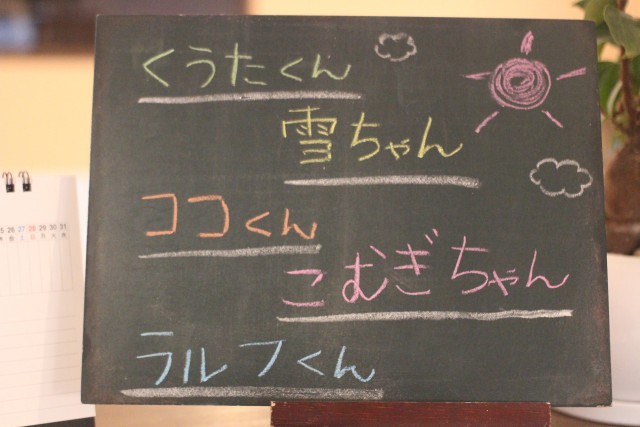 くうたくん
雪ちゃん
ココくん
こむぎちゃん
ラルフくん
26 27 28 29 30 31